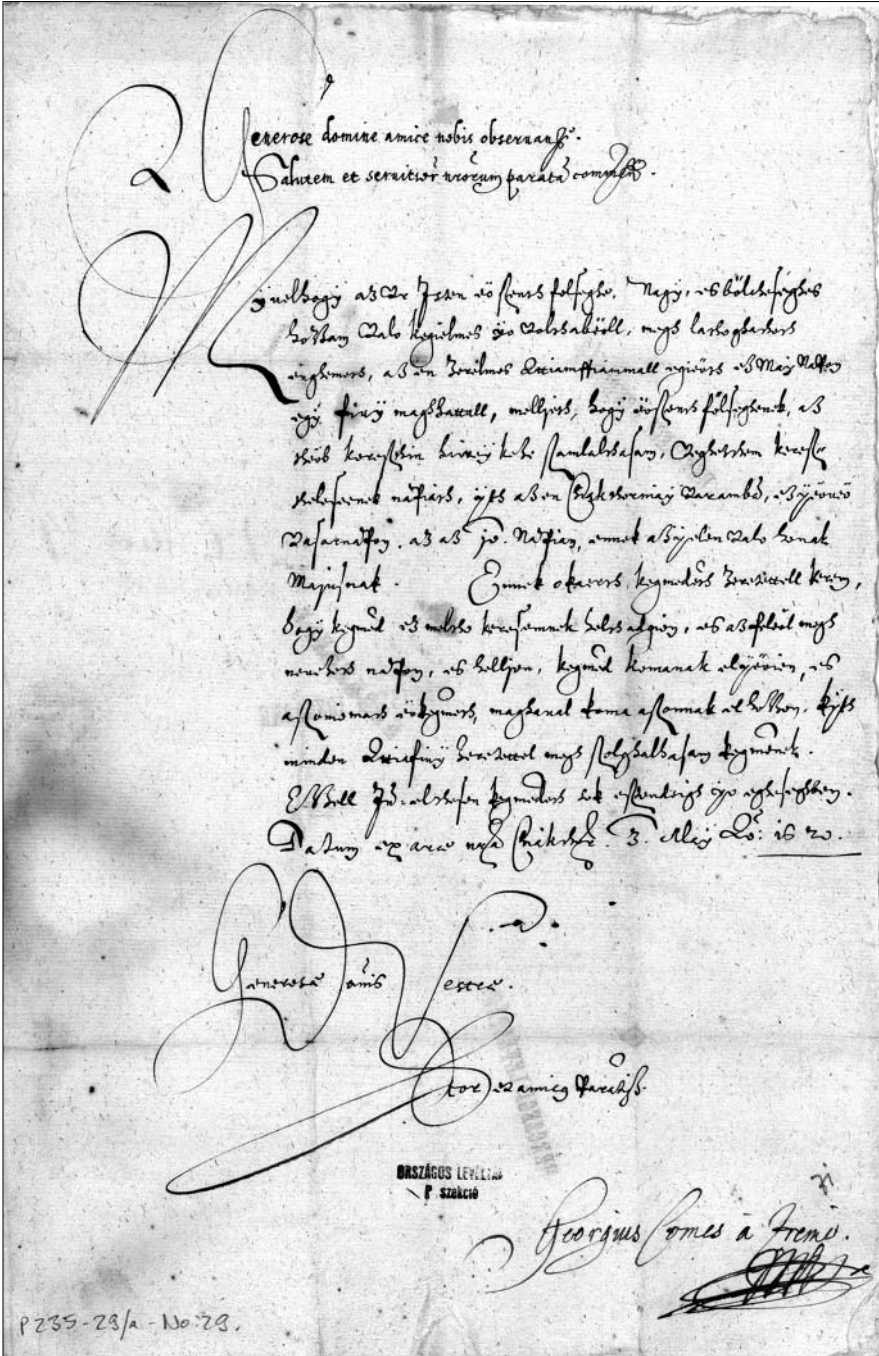 Generose domine amice nobis observan
Salutem et servitior nrorum parata comm
Mÿvelhogÿ az Ur Isten eö szents fölseghe. Nagÿ, es bölcheseghes
hozzam valo kegielmes ÿo voltabúll, megh latogatot
enghemet, az en Zerelmes Attiamffiaimall egieöt ez Maÿ Napon
egÿ fiuÿ maghzattall, mellÿet, hogÿ eöszent fölseghenek, az
töb keresztÿen hiveÿ köze szamlalhasam, Veghettem keresz
telesenek napiat, ÿtt az en Chaktorniaÿ Varamba, ez ÿeöveö
Vasarnapon. az az 10. Napian, ennek az ÿelen valo honak
Majusnak. Ennek okaert kegmedet Zeretettell kerem,
hogÿ kegmed ez melto keresemnek helt adgion, es az felöl megh
nevezet napon, es hellÿen, kegmed komanak elÿeöien, es
aszoniomat eökegmet, maghaval koma aszonnak el hozza. kÿt
minden Attiafiuÿ Zeretettel megh szolghalhasam kegmenek.
Ezzell In: eltesse kegmedet sok esztendeigh ÿo egheseghben.
Datum ex arce nra Chakt. 3. Maÿ Ao: 1620.
Generosae Donis Vestrae.
et amicus Paratiss.
ORSZÁGOS LEVÉLTÁR
P szekció
31
Georgius Comes à Zrinio.
P 235-29/a - No: 29.